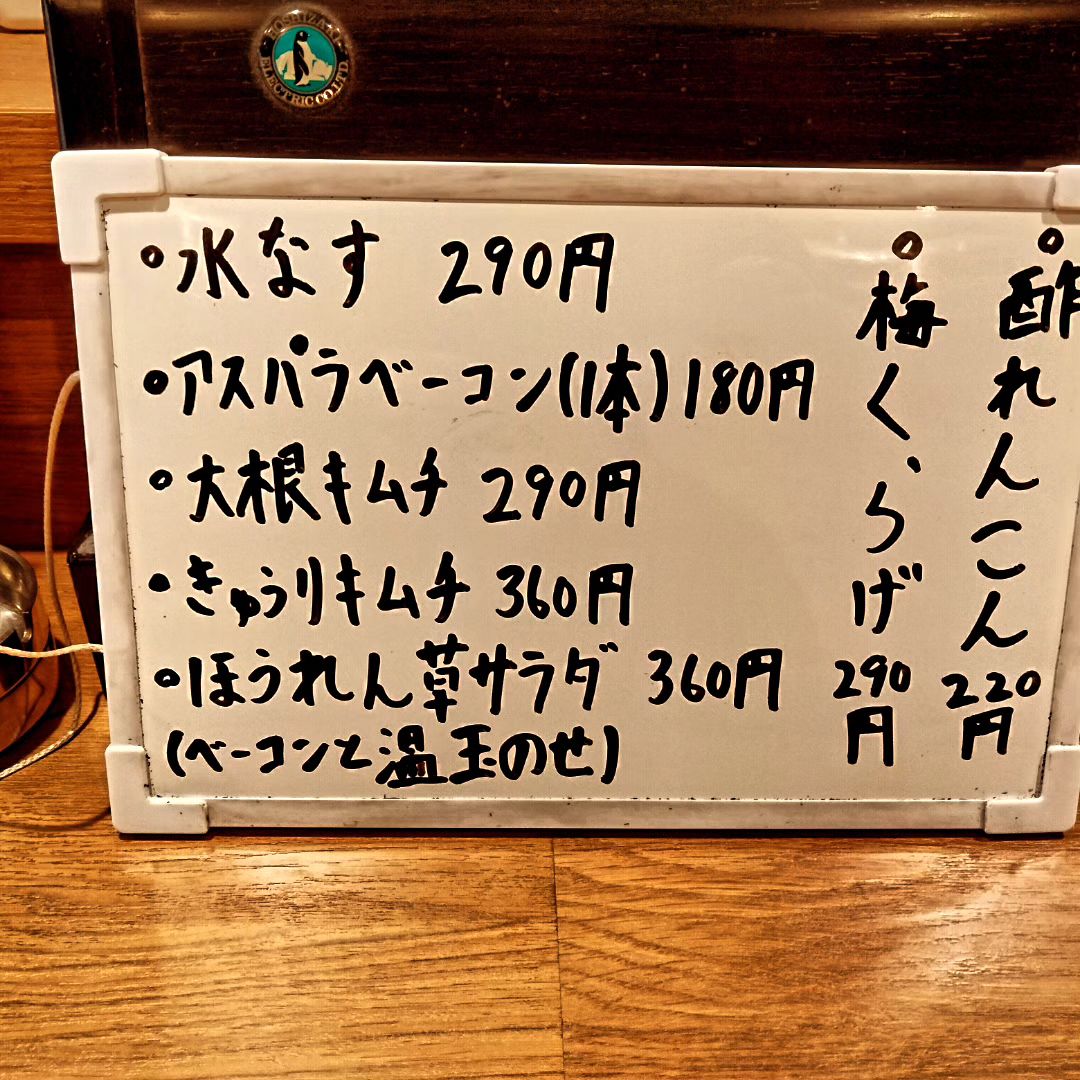 HOSHIZAKI ELECTRIC CO.LTD.
・水なす 290円
・アスパラベーコン(1本)180円
・大根キムチ 290円
・きゅうりキムチ 360円
・ほうれん草サラダ 360円
(ベーコンと温玉のせ)
・酢れんこん 220円
・梅くらげ 290円